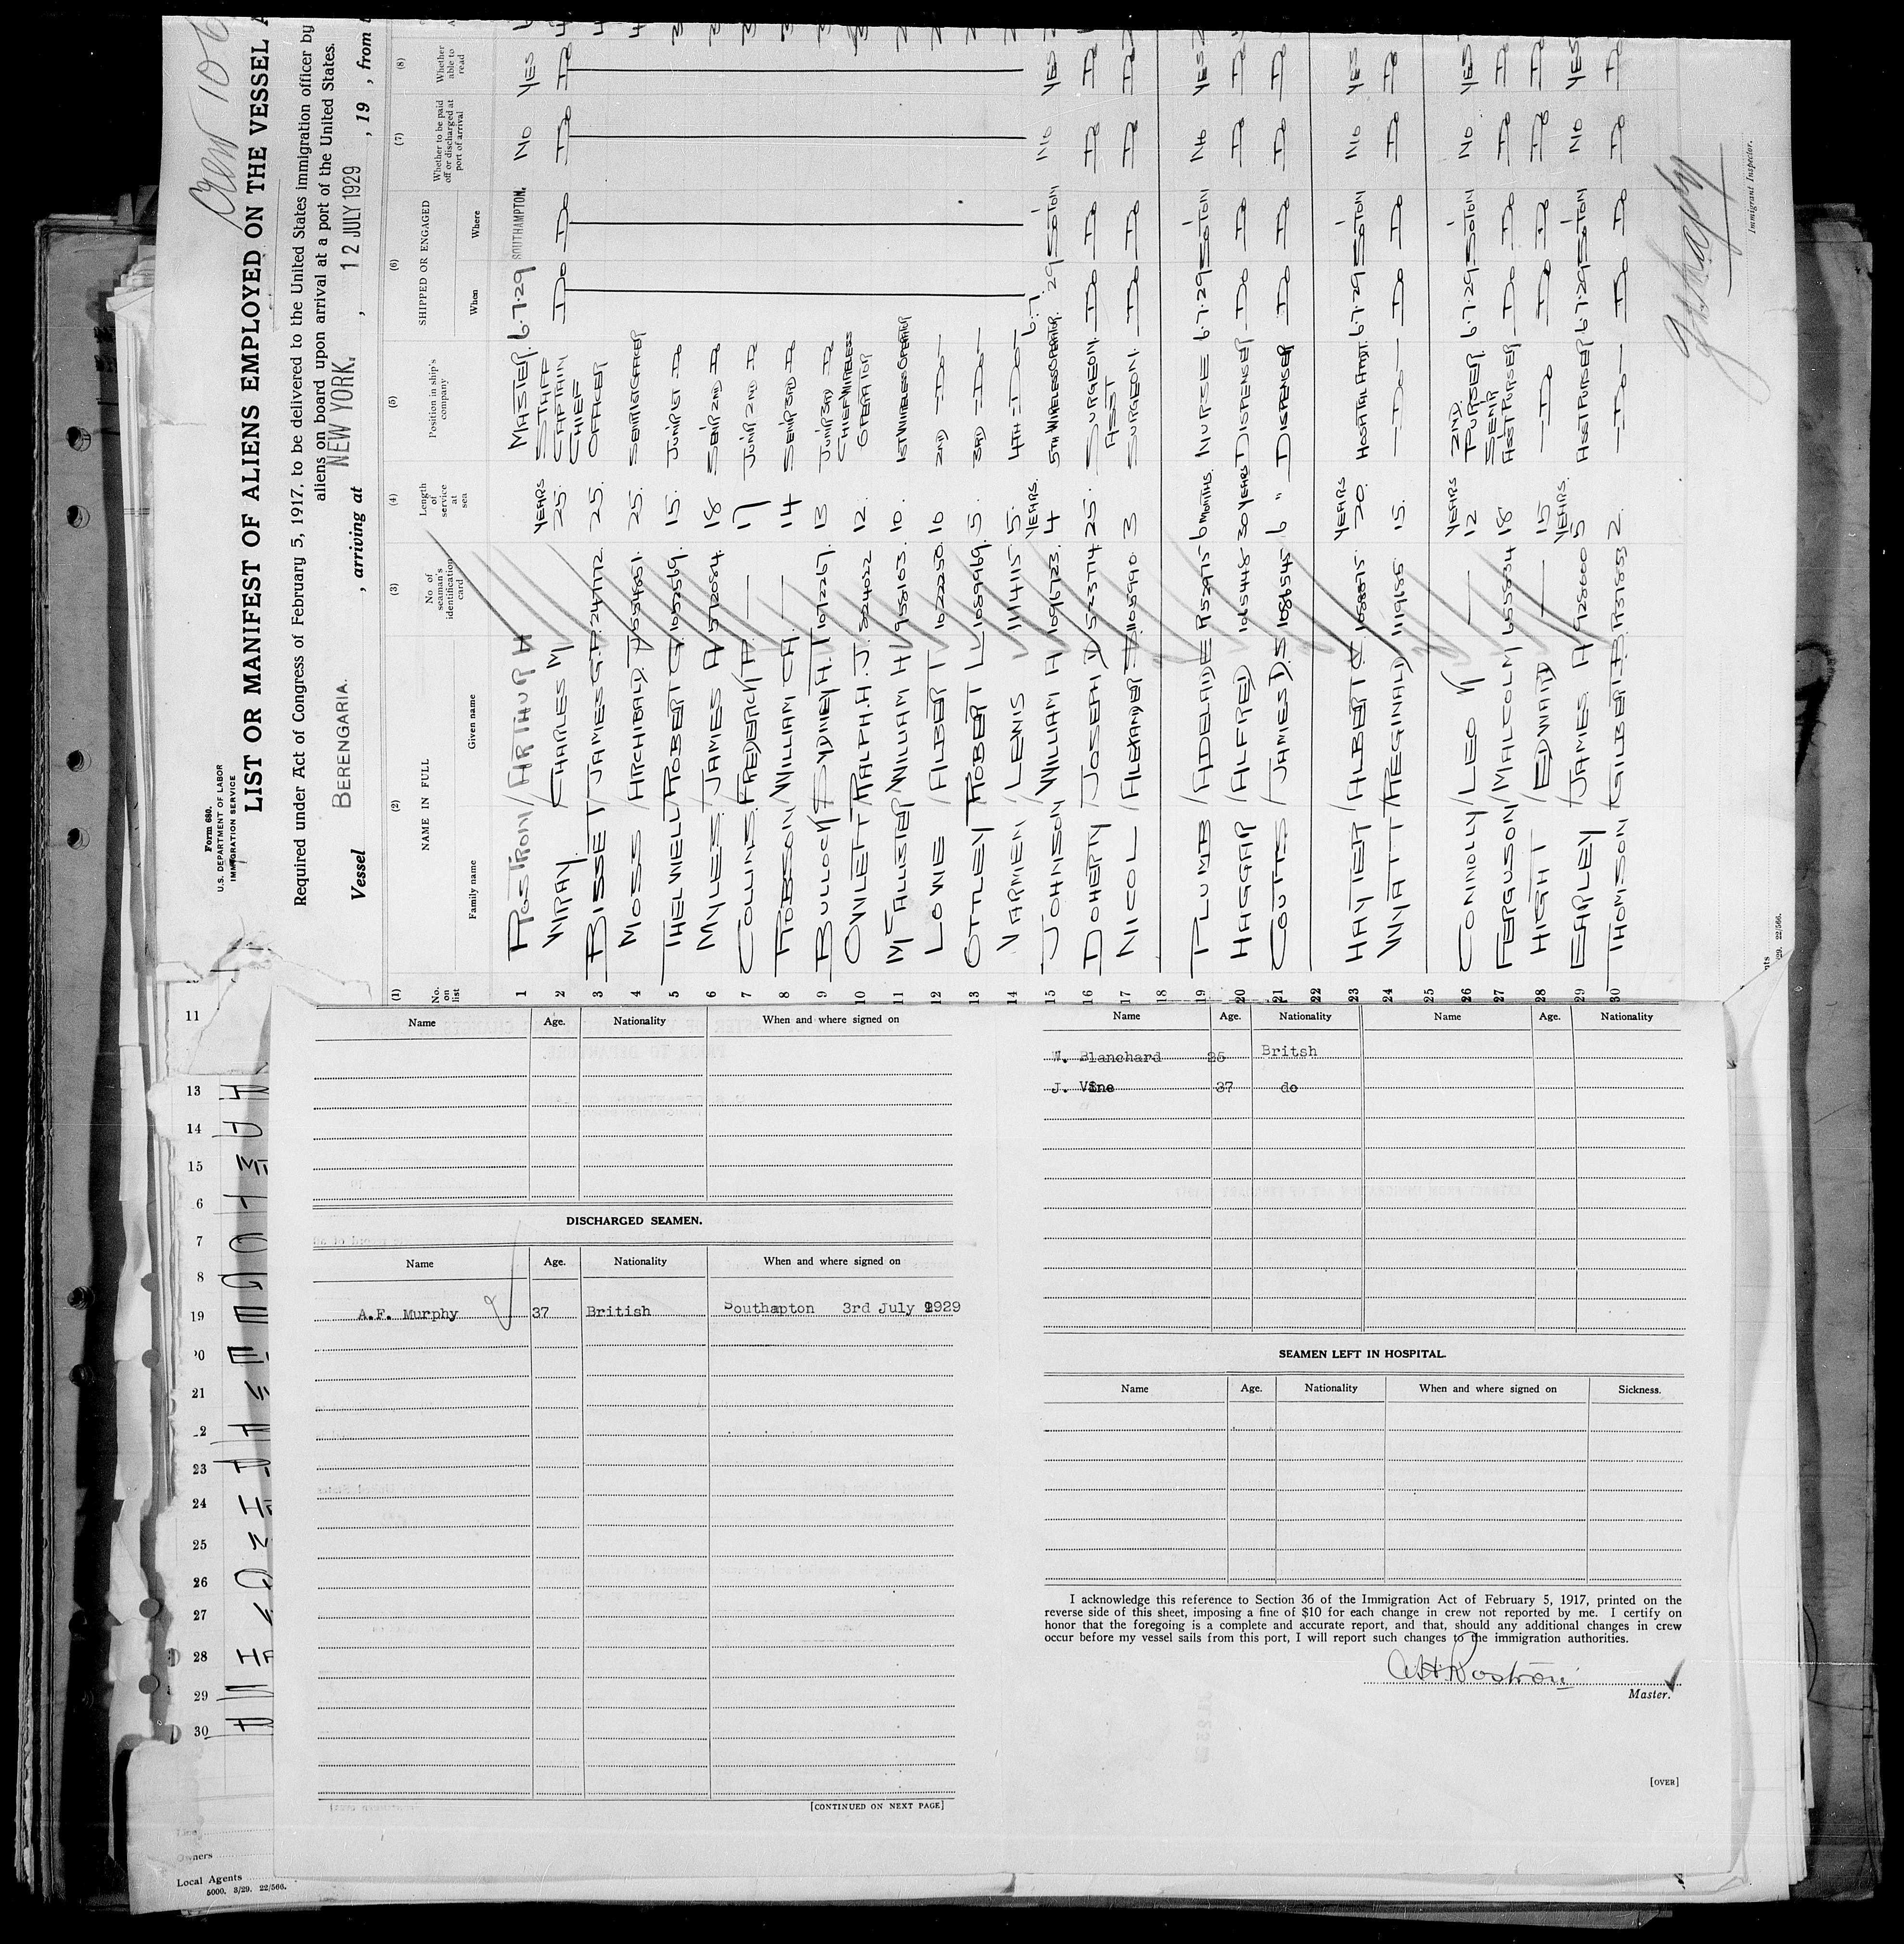 Crew 106
Form 680.
U.S. DEPARTMENT OF LABOR
IMMIGRATION SERVICE
LIST OR MANIFEST OF ALIENS EMPLOYED ON THE VESSEL A
Required under Act of Congress of February 5, 1917, to be delivered to the United States immigration officer by
aliens on board upon arrival at a port of the United States.
Vessel BERENGARIA. , arriving at NEW YORK. , 12 JULY 1929 , 19 , from
(1) (2) (3) (4) (5) (6) (7) (8)
No. on list
NAME IN FULL
Family name Given name
No. of seaman's identification card
Length of service at sea
Position in ship's company
SHIPPED OR ENGAGED
When Where
Whether to be paid off or discharged at port of arrival
Whether able to read
1 ROSTRON ARTHUR H MASTER. 6.7.29 SOUTHAMPTON. NO YES
2 WRAY CHARLES M YEARS 25. STAFF CAPTAIN DO DO DO DO
3 BISSET JAMES G.P. 247172. 25. CHIEF OFFICER
4 MOSS ARCHIBALD. 25.
5 THELWELL ROBERT G. 1052569. 15. JUNR 1ST DO
6 MYLES. JAMES A 18 SENR 2ND DO
7 COLLINS. FREDERICK A. — 17 JUNR 2ND DO
8 ROBSON WILLIAM CA. — 14 SENR 3RD DO
9 BULLOCK SYDNEY A. 1092267. 13 JUNR 3RD DO
10 OWLETT RALPH. A. J. 12. CHIEF WIRELESS OPERATOR
11 McALLISTER WILLIAM H 958163. 10. 1ST WIRELESS OPERATOR
12 LOWE ALBERT 1022250. 10 2ND —DO—
13 OTTLEY ROBERT L 1089969. 5. 3RD —DO—
14 LEWIS 1114115. 5. 4TH —DO—
15 JOHNSON WILLIAM A 1096723. YEARS. 4 5TH WIRELESS OPERATOR. 6.7.29 SOTON NO YES
16 DOHERTY JOSEPH D 523574 25. SURGEON. DO DO DO DO
17 NICOL ALEXANDER 1105990. 3 ASST SURGEON. DO DO DO DO
18
19 PLUMB ADELAIDE R152975 6 MONTHS. NURSE 6.7.29 SOTON NO YES
20 HAGGAR ALFRED 1065448 30 YEARS DISPENSER DO DO DO DO
21 COUTTS JAMES D.S 1086545 6 " DISPENSER DO DO DO DO
22
23 HAYTER ALBERT C YEARS 20. HOSPITAL ATTDT. 6.7.29 SOTON NO YES
24 WYATT REGINALD 1119185. 15. —DO— DO DO DO DO
25
26 CONNOLLY LEO — YEARS 12 2ND. PURSER. 6.7.29 SOTON NO YES
27 FERGUSON MALCOLM 655534 18 SENR ASST PURSER DO DO DO DO
28 HIGHT EDWARD — 15 —DO— DO DO DO DO
29 EARLEY JAMES. A 928600 YEARS. 5 ASST PURSER 6.7.29 SOTON NO YES
30 THOMSON GILBERT 2. —DO— DO DO DO DO
Immigrant Inspector.
Name Age. Nationality When and where signed on
DISCHARGED SEAMEN.
Name Age. Nationality When and where signed on
A.F. Murphy 37 British Southapton 3rd July 1929
[CONTINUED ON NEXT PAGE]
Name Age. Nationality Name Age. Nationality
W. Blanchard 26 Britsh
J. Vine 37 do
SEAMEN LEFT IN HOSPITAL.
Name Age. Nationality When and where signed on Sickness.
I acknowledge this reference to Section 36 of the Immigration Act of February 5, 1917, printed on the
reverse side of this sheet, imposing a fine of $10 for each change in crew not reported by me. I certify on
honor that the foregoing is a complete and accurate report, and that, should any additional changes in crew
occur before my vessel sails from this port, I will report such changes to the immigration authorities.
A H Rostron
Master.
[OVER]
11
13
14
15
6
7
8
19
20
21
2
23
24
25
26
27
28
29
30
Owners
Local Agents
5000. 3/29. 22/566.